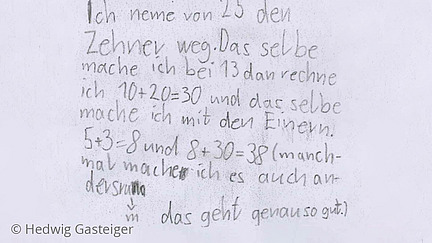 Ich neme von 25 den
Zehner weg. Das selbe
mache ich bei 13 dan rechne
ich 10+20=30 und das selbe
mache ich mit den Einern.
5+3=8 und 8+30=38 (manch-
mal mache ich es auch an-
dersrum
↓
m das geht genauso gut.)
© Hedwig Gasteiger